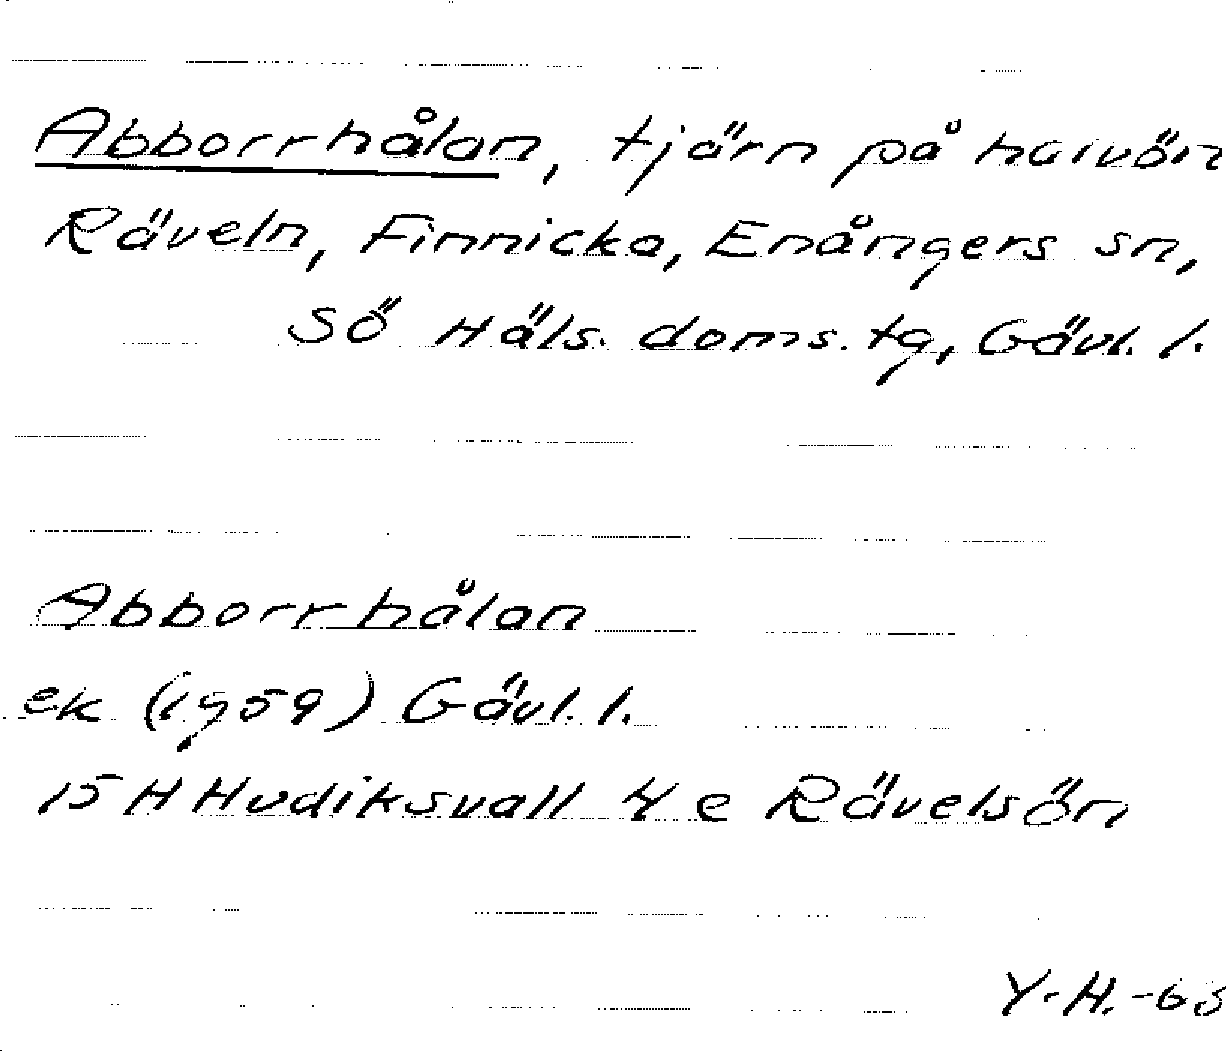 Abborrhålan, tjärn på halvön
Räveln, Finnicka, Enångers sn,
SÖ Häls. doms. tg, Gävl. l.
Abborrhålan
ek (1959) Gävl. l.
15 H Hudiksvall 4 e Rävelsön
Y.H.-63